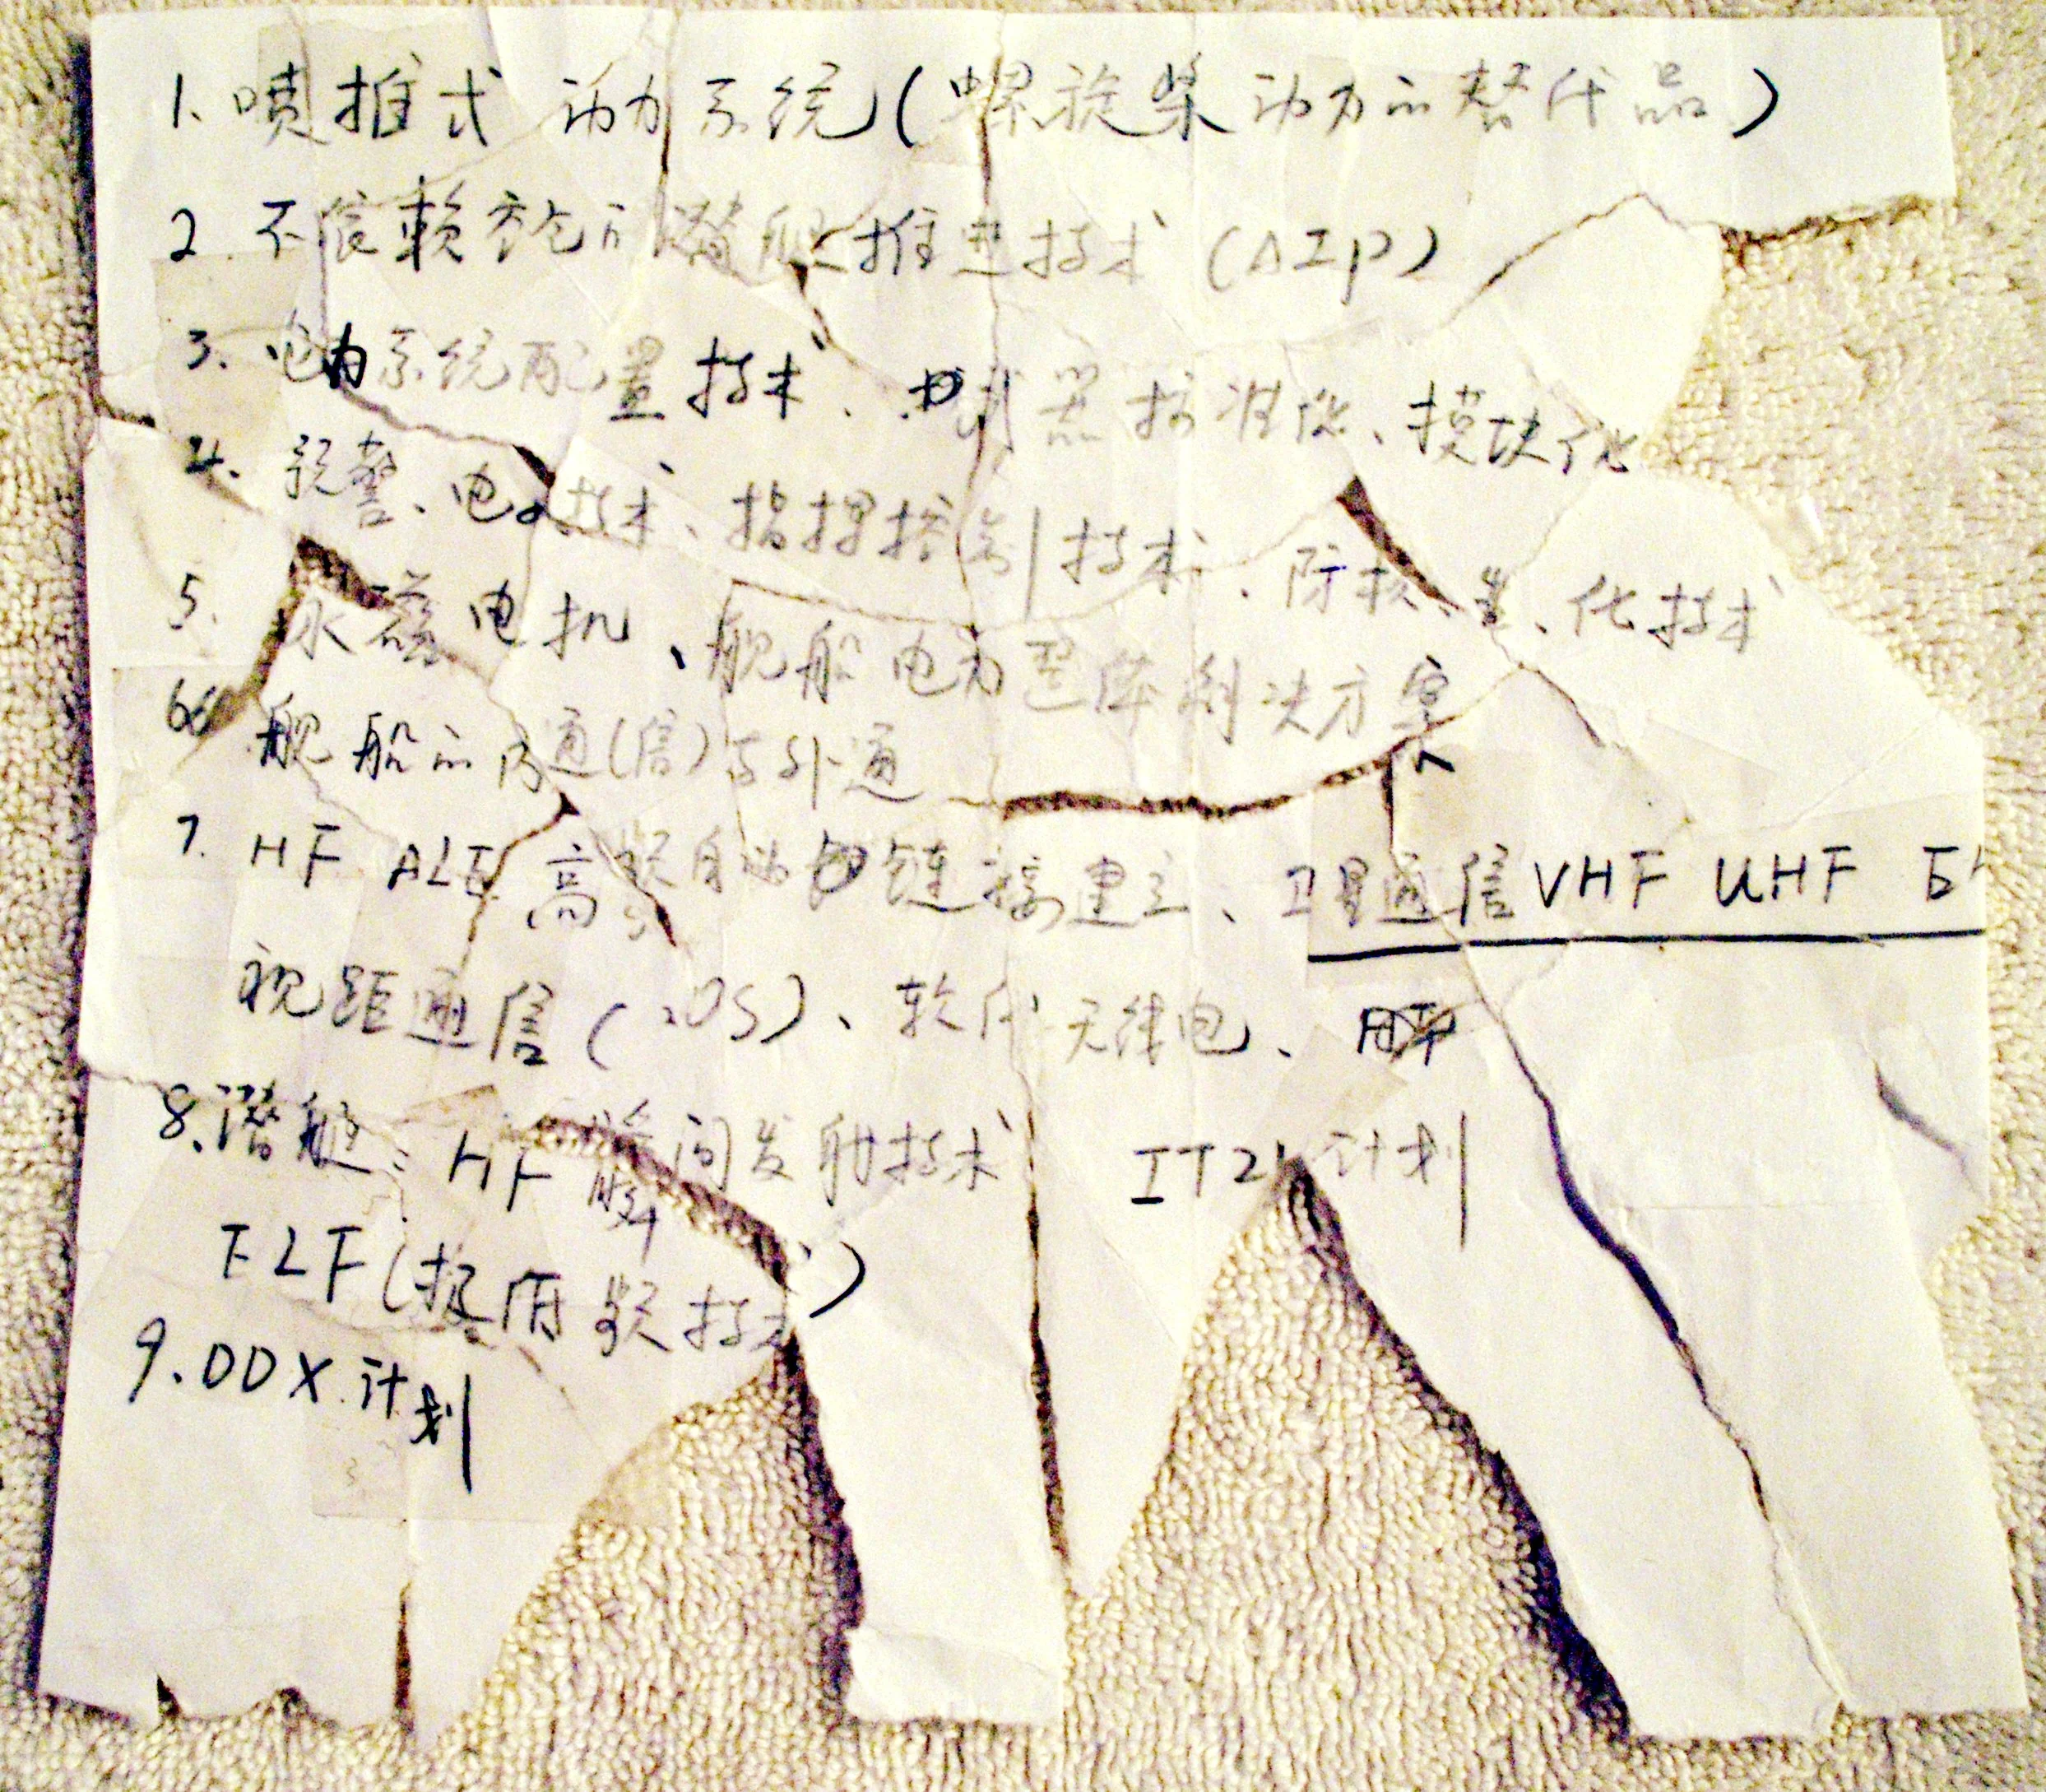 1. 喷推式 动力系统(螺旋桨动力的替代品)
2. 不依赖空气的潜艇推进技术 (AIP)
3. 电力系统配置技术、 器标准化、模块化
4. 预警、电 技术、指挥控制技术、防核、生、化技术
5. 永磁电机、舰船电力整体解决方案
6 舰船的内通(信)与外通
7. HF ALE 高频自动 链接建立、卫星通信 VHF UHF
视距通信( OS)、软件无线电、
8. 潜艇: HF 瞬间发射技术 IT21 计划
ELF(极低频技术)
9. DDX 计划